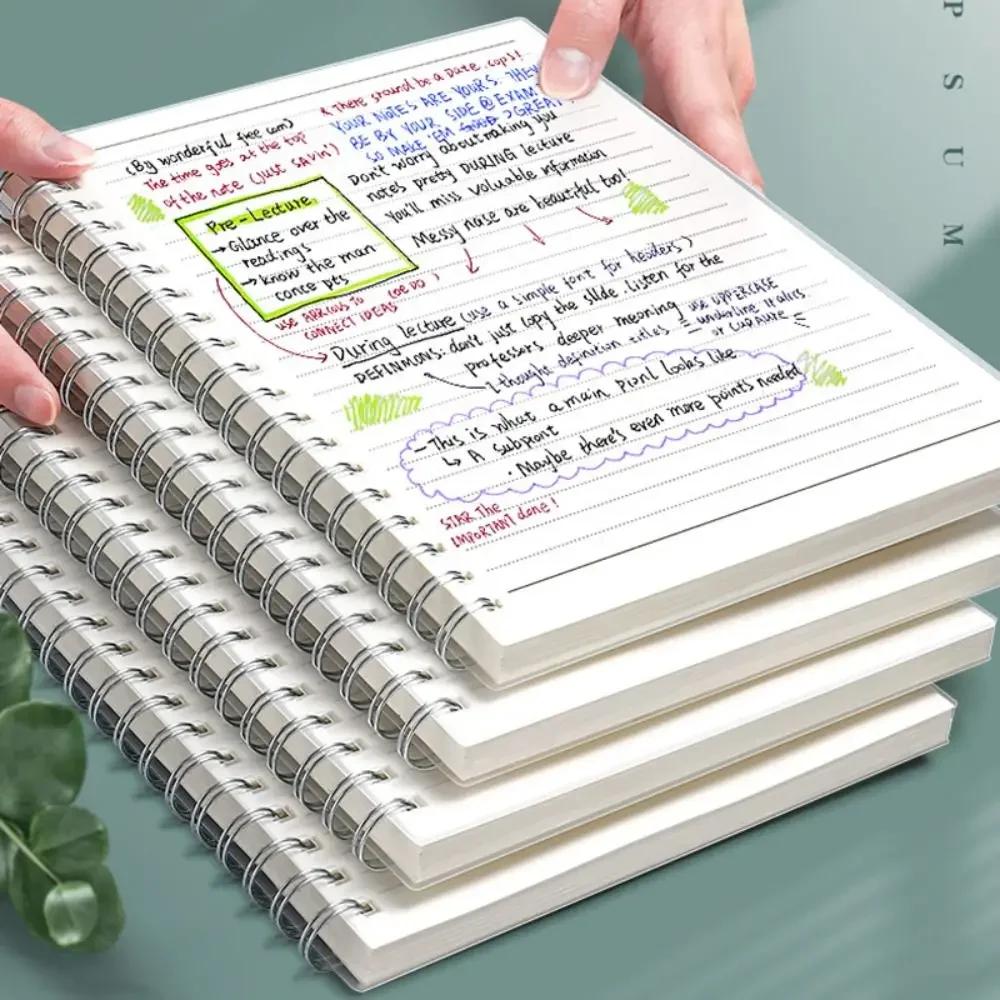 * There shound be a Date .cops!
(By wonderful free am)
The time goes at the top
of the note (Just savin')
YOUR NOTES ARE YOURS. THEY
BE BY YOUR SIDE @ EXAM
SO MAKE EM GREAT
Don't worry about making you
notes pretty DURING lecture
You'll miss valuable information
Messy nose are beautiful too!
Pre-Lecture
→ Glance over the
readings
→ know the man
conce pts
use to
CONNECT IDEAS
During lecture (use a simple font for headers)
DEFINMONS: don't just copy the slide listen for the
professors deeper meaning
I thought definition titles =
use UPPERCASE
underline Italics
or CURAURE
- This is what a main Pionl looks like
↳ A subpont
· Maybe there's even more points needed
STAR The
IMPORTANT done!
P S U M